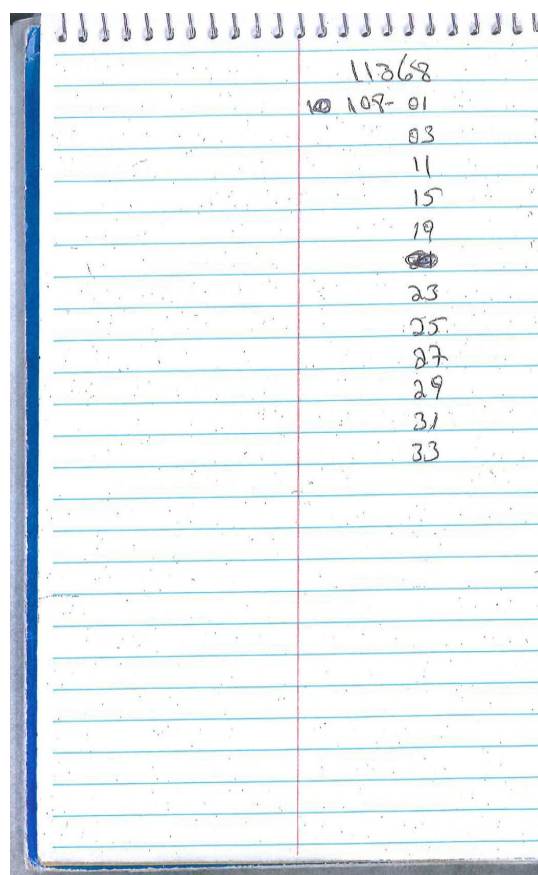 11368
108- 01
03
11
15
19
23
25
27
29
31
33